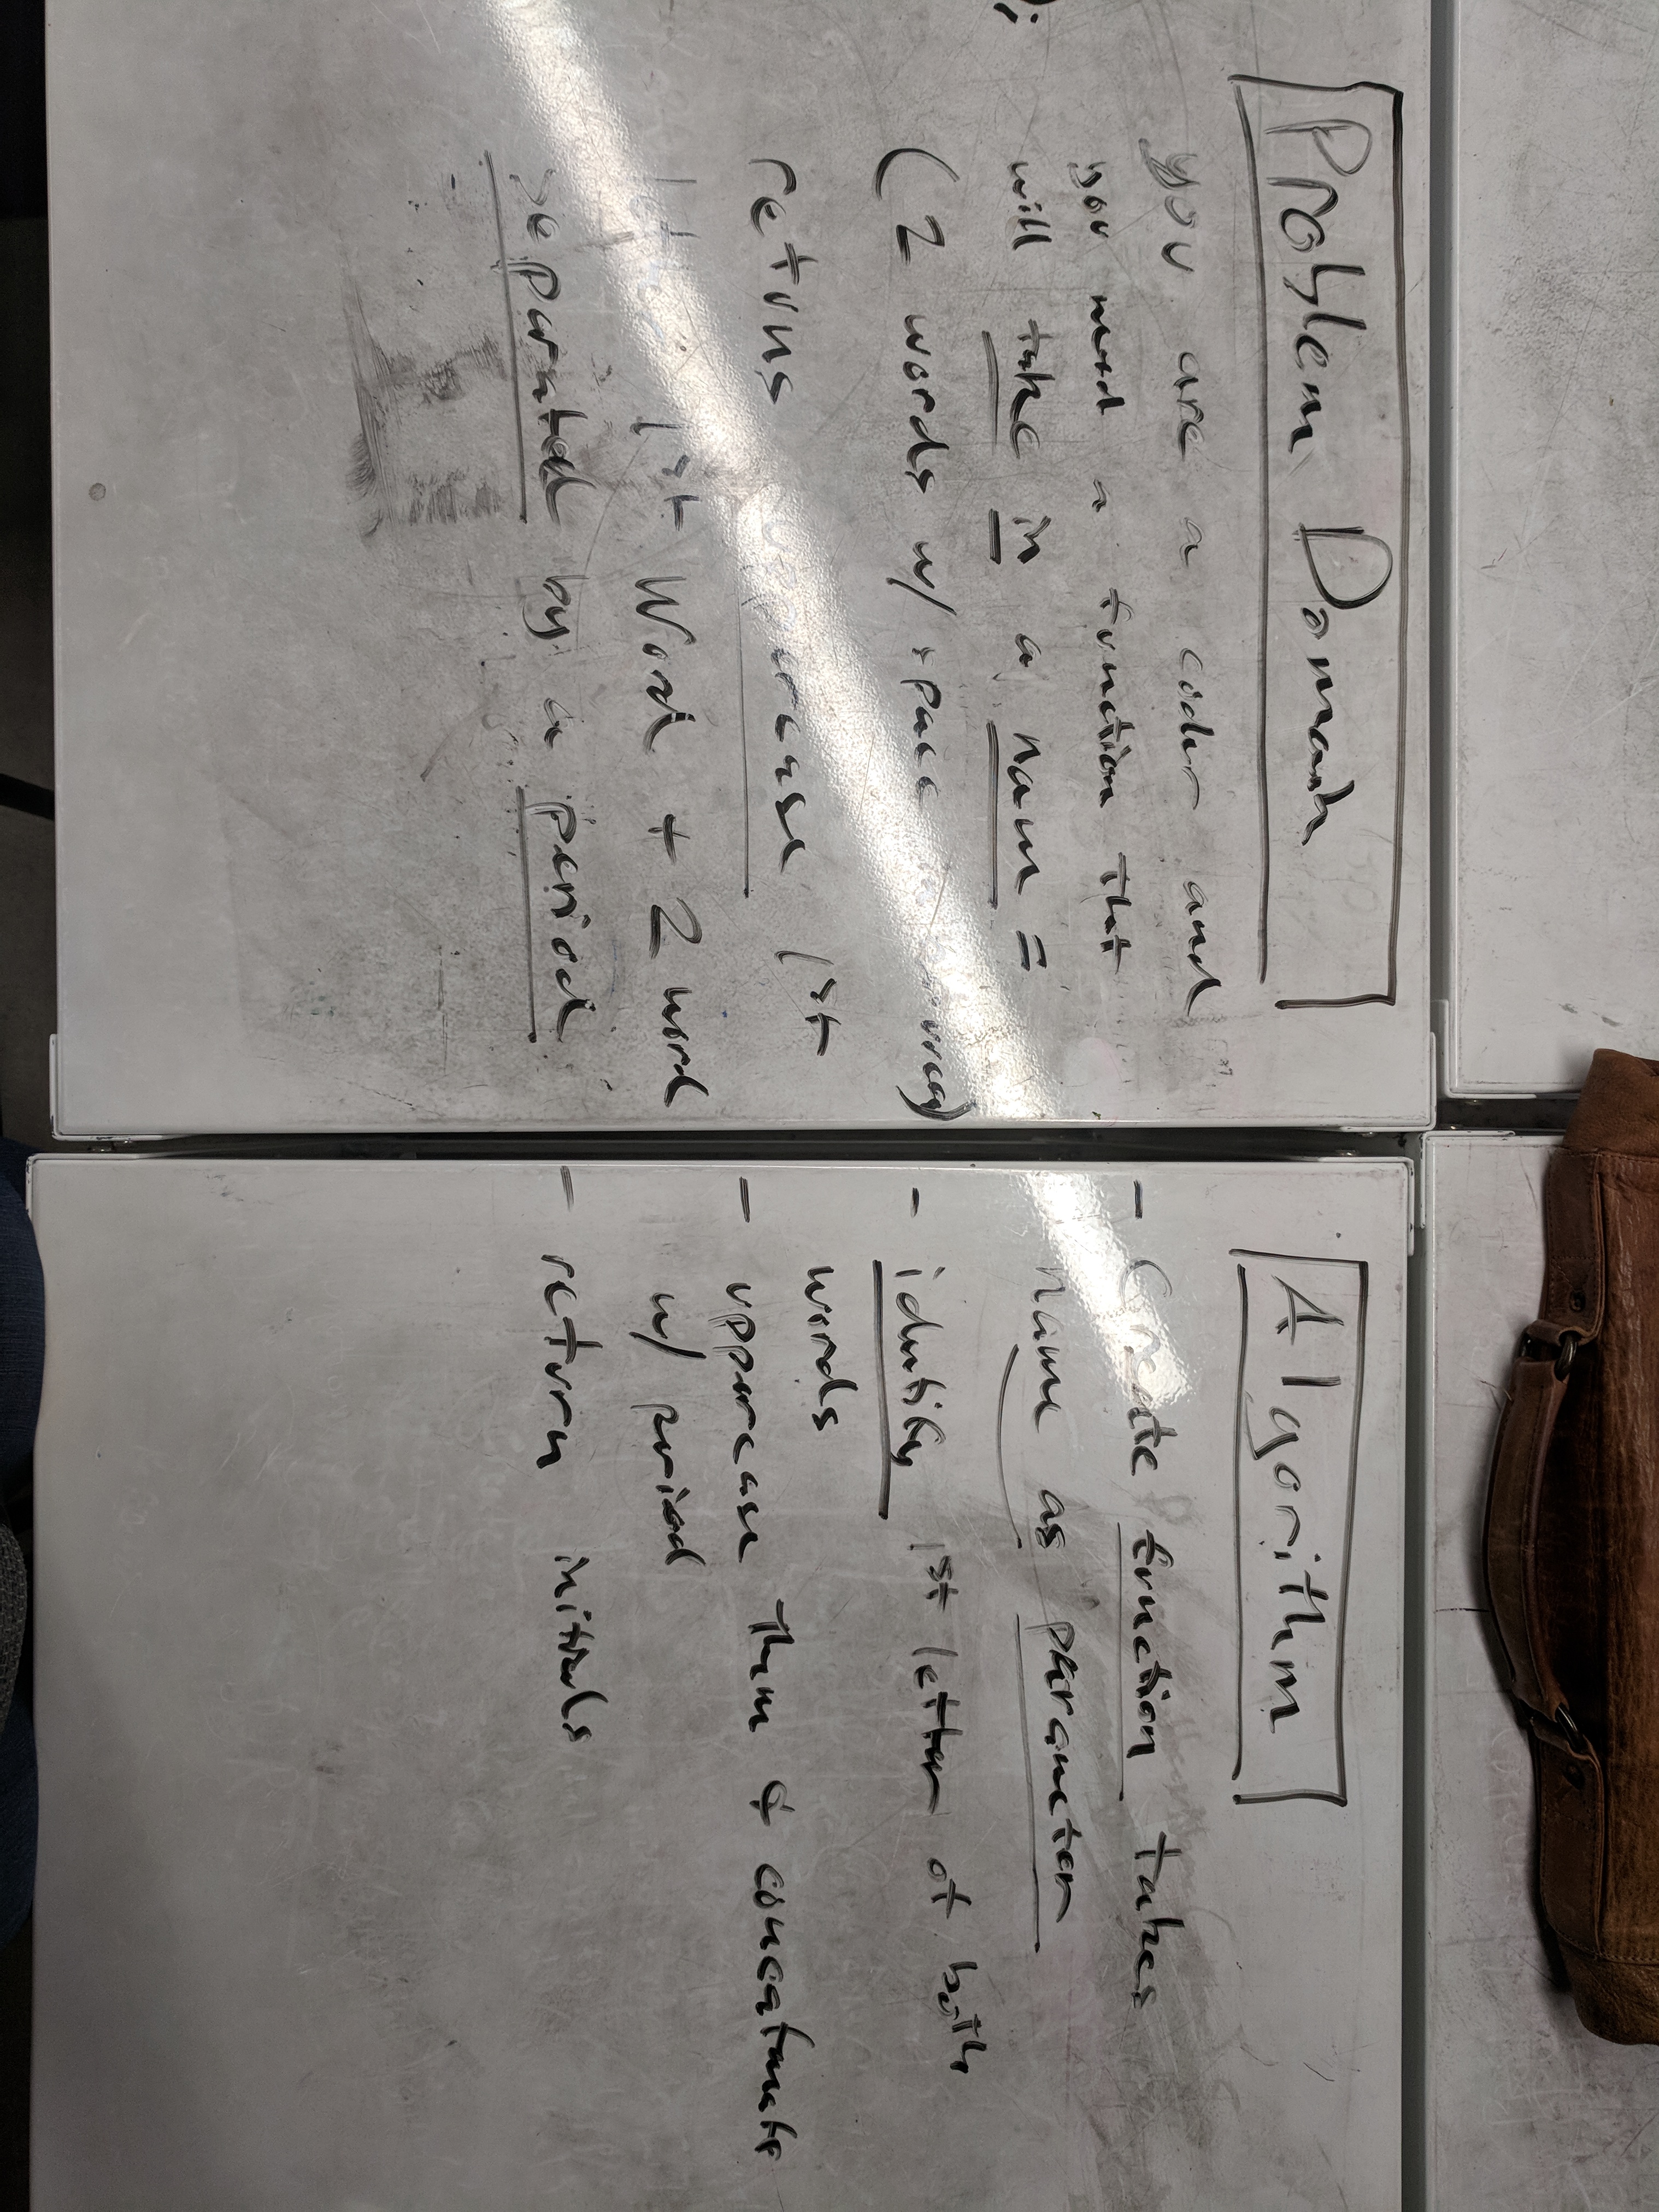 Problem Domain
you are a coder and
you need a function that
will take in a name =
(2 words w/ space
returns uppercase 1st
1st Word + 2 word
separated by a period
Algorithm
- Create function takes
name as parameter
- identify 1st letter of both
words
- uppercase them & concatanate
w/ period
- return initials